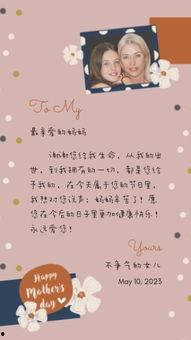 To My
最亲爱的妈妈
谢谢您给我生命,从我的出
世,到我拥有的一切,都是您给
予我的,在今天属于您的节日里,
我想对您说声:妈妈辛苦了!愿
您在今后的日子里更加健康快乐!
永远爱您!
Yours
不争气的女儿
May 10, 2023
Happy
Mother's
day